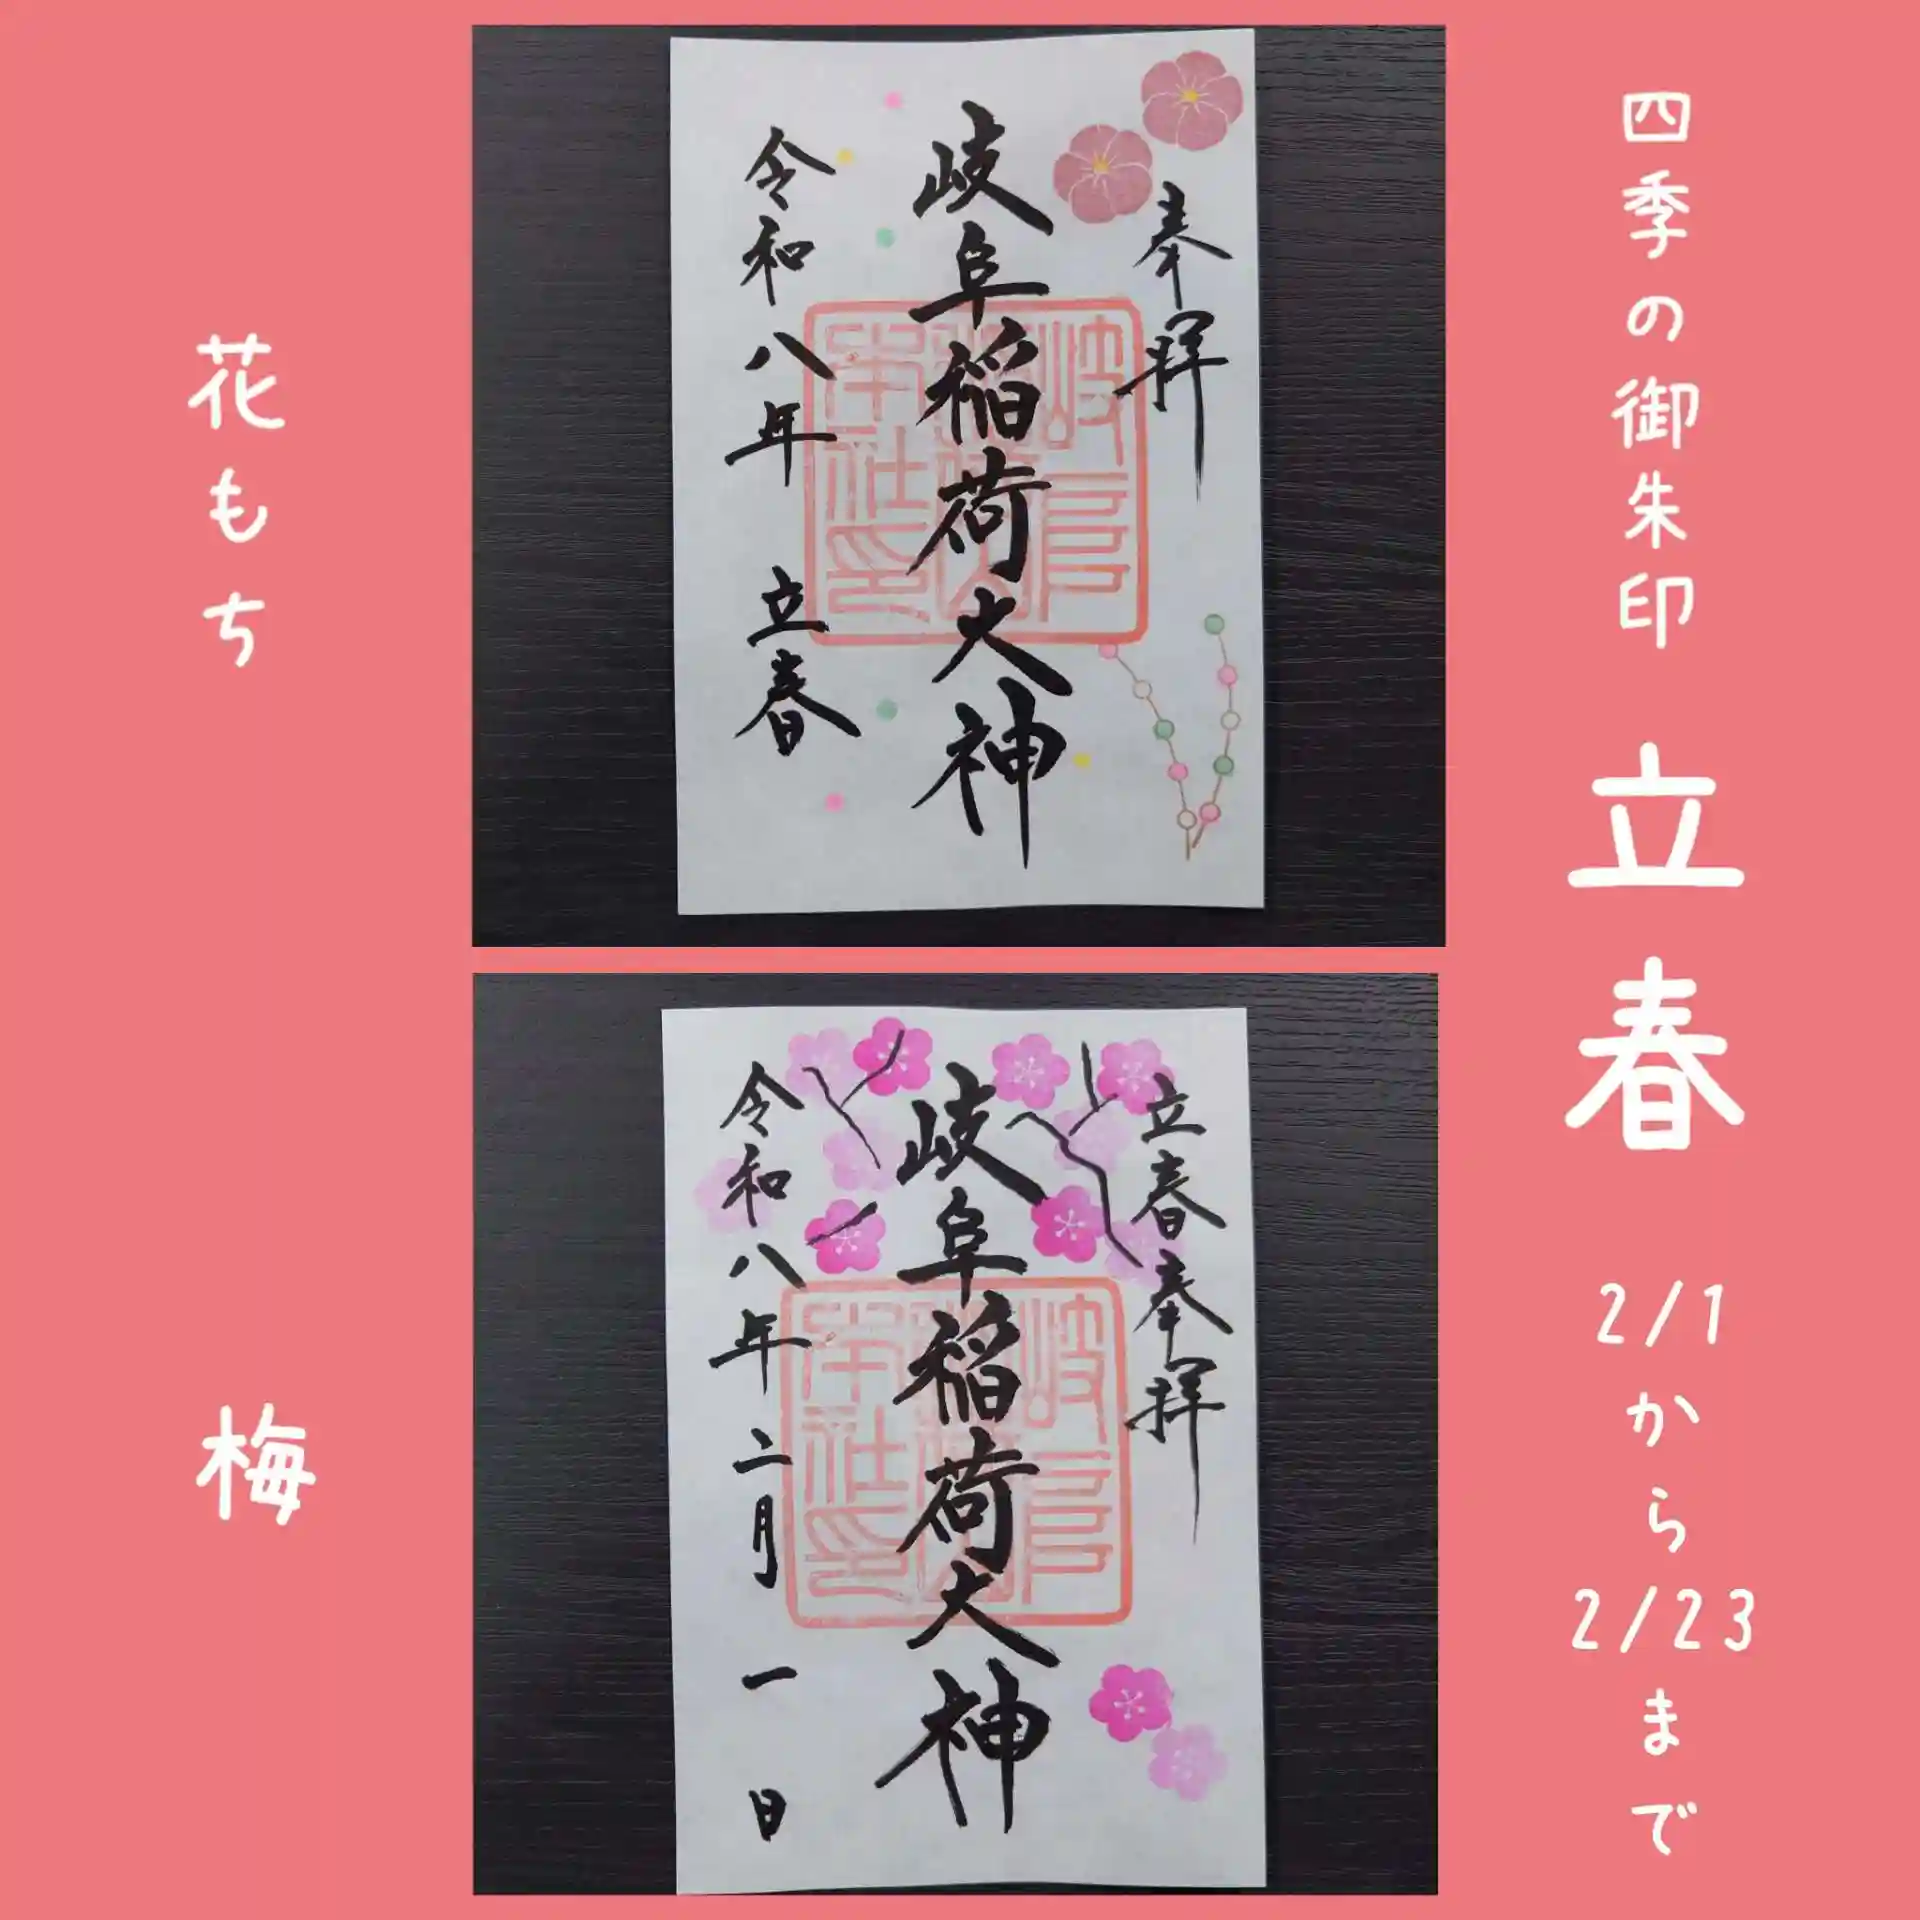 四季の御朱印 立春 2/1から2/23まで
花もち
奉拝
岐阜稲荷大神
令和八年 立春
梅
立春奉拝
岐阜稲荷大神
令和八年二月一日